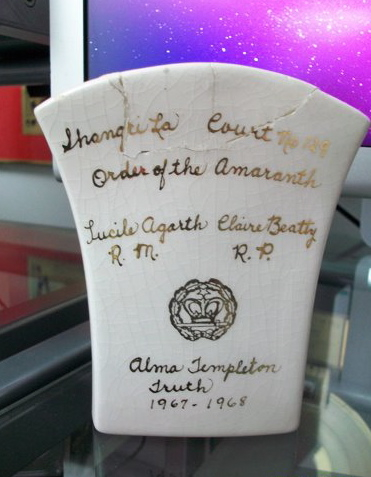 Shangri La Court No
Order of the Amaranth
Lucile Agarth Claire Beatty
R. M. R. P.
Alma Templeton
Truth
1967-1968